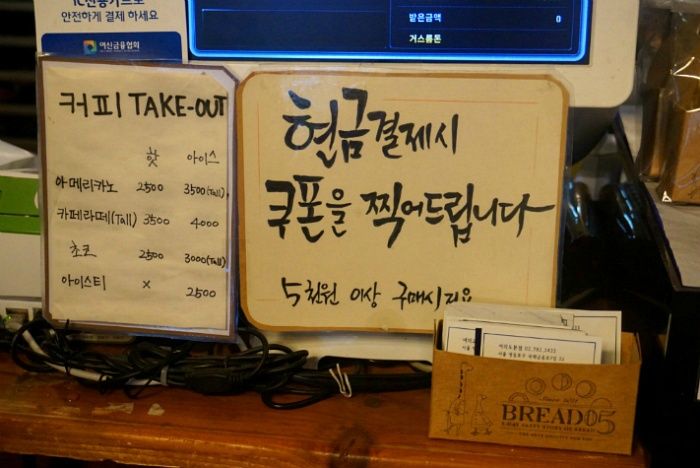 IC신용카드로
안전하게 결제 하세요
여신금융협회
받은금액 0
거스름돈
커피 TAKE-OUT
핫 아이스
아메리카노 2500 3500(Tall)
카페라떼(Tall) 3500 4000
초코 2500 3000(Tall)
아이스티 × 2500
현금결제시
쿠폰을 찍어드립니다
5천원 이상 구매시지요
BREAD05